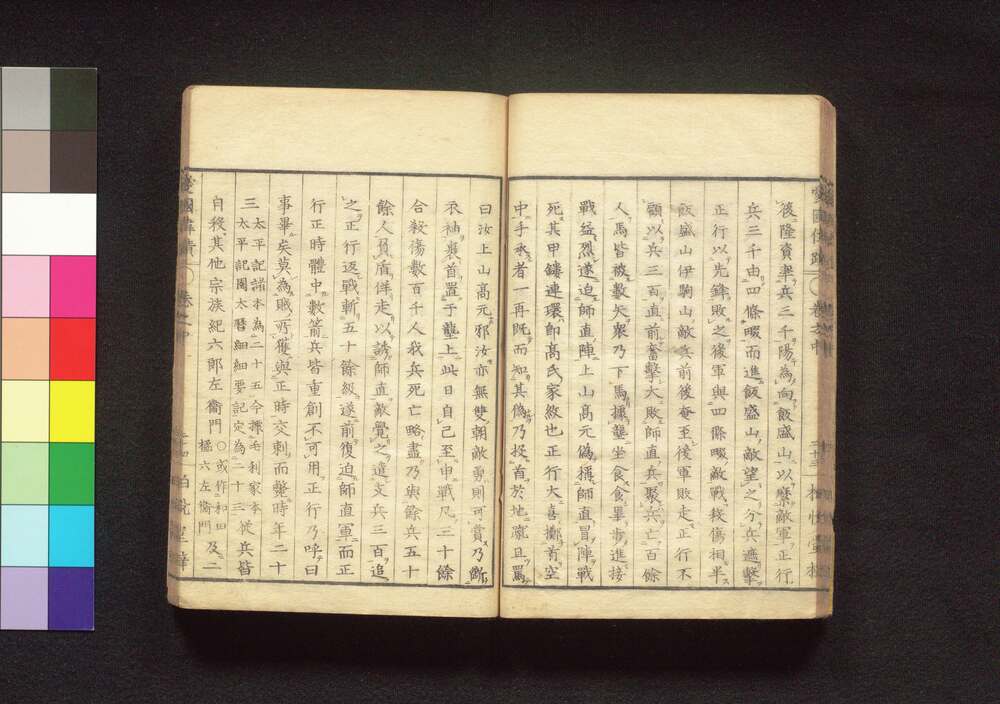 後隆資率兵三千陽為向飯盛山以縻敵軍正行
兵三千由四條畷而進飯盛山敵望之分兵遮擊
正行以先鋒敗之後軍與四條畷敵戰殘傷相半
飯盛山伊駒山敵兵前後奄至後軍敗走正行不
顧以兵三百直前奮擊大敗師直兵聚兵亡百餘
人馬皆被數矢衆乃下馬據壟坐食食畢步進接
戰益烈遂迫師直陣上山高元偽稱師直冒陣戰
死其甲鏤連環即高氏家紋也正行大喜擲首空
中手承者一再既而知其偽乃投首於地罵且罵
曰汝上山高元邪汝亦無雙朝敵勇則可賞乃斷
衣袖裹首置于壟上此日自己至申戰凡三十餘
合殺傷數百千人我兵死亡略盡乃與餘兵五十
餘人負盾佯走以誘師直敵覺之遣支兵三百追
之正行返戰斬五十餘級遂前復迫師直軍而正
行正時體中數箭兵皆重創不可用正行乃呼曰
事畢矣莫為敗所獲與正時交刺而斃時年二十
三太平記諸本為二十五今據毛利家本
太平記園太曆細細要記定為二十三從兵皆
自殺其他宗族紀六郎左衞門〇或作和田
橘六左衞門及二